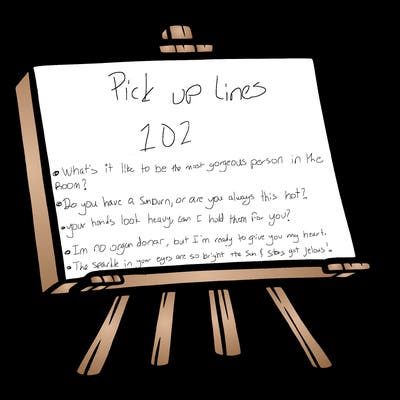 Pick up Lines
102
• What's it like to be the most gorgeous person in the
Room?
• Do you have a Sunburn, or are you always this hot?
• your hands look heavy, can I hold them for you?
• Im no organ donar, but I'm ready to give you my heart.
• The sparkle in your eyes are so bright the Sun & Stars got Jelous!